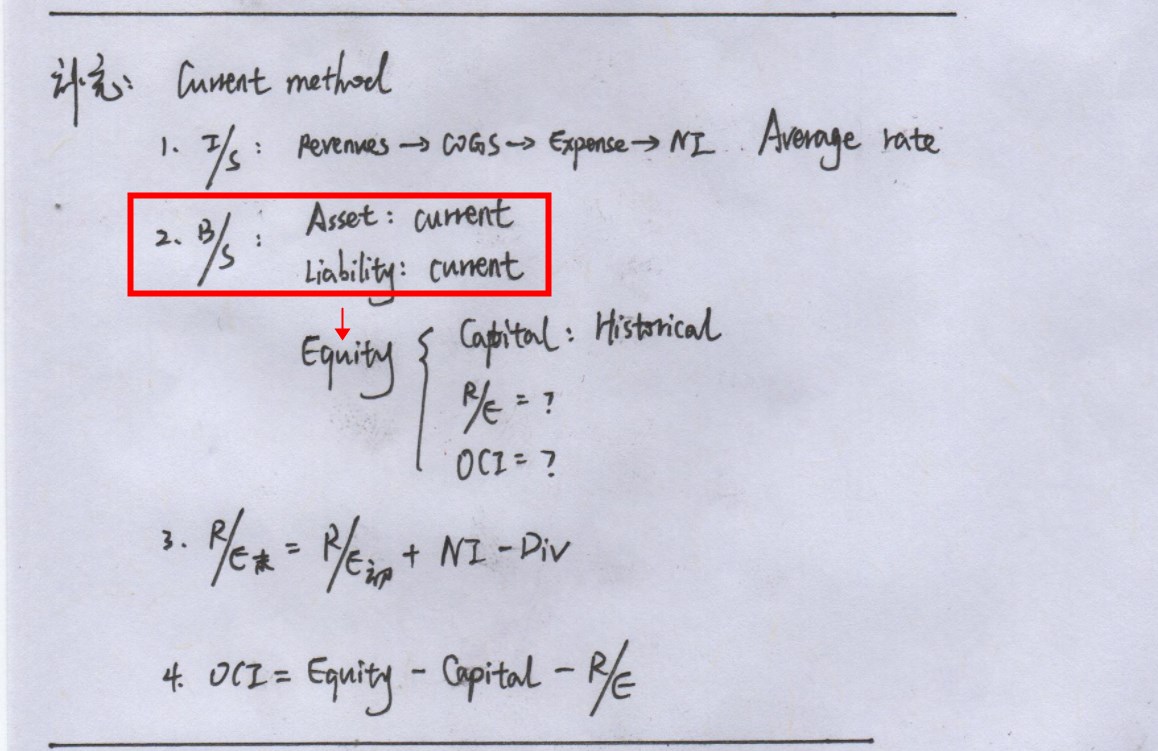 补充: Current method
1. I/S: Revenues → COGS → Expense → NI. Average rate
2. B/S: Asset: current
Liability: current
↓
Equity { Capital: Historical
R/E = ?
OCI = ?
3. R/E末 = R/E初 + NI - Div
4. OCI = Equity - Capital - R/E